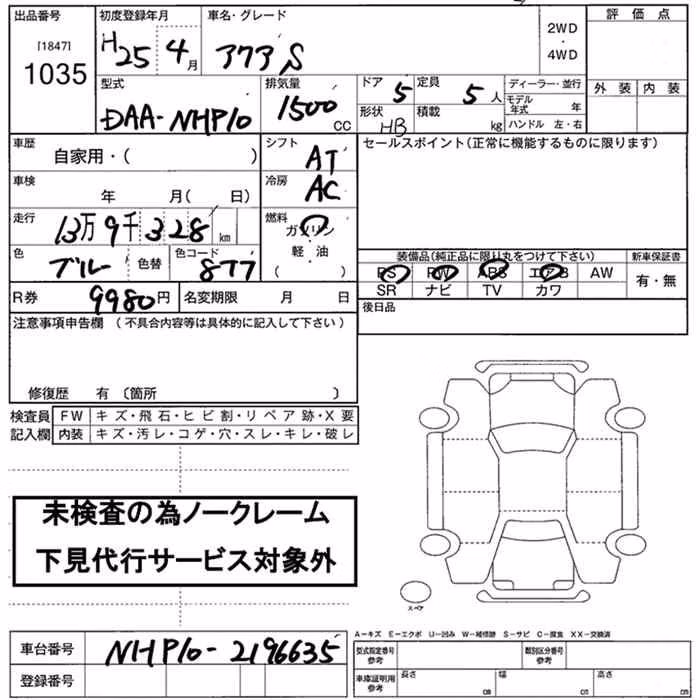 出品番号 初度登録年月 車名・グレード 評価点
[1847] 1035 H25 4月 アクア S 2WD・4WD
型式 排気量 ドア 定員 ディーラー・並行 外装 内装
DAA-NHP10 1500 CC 5 5人 モデル年式 年
形状 HB 積載 kg ハンドル 左・右
車歴 シフト セールスポイント(正常に機能するものに限ります)
自家用・( ) AT
車検 冷房
年 月( 日) AC
走行 燃料
13万9千328km ガソリン
色 色替 色コード 軽・油 装備品(純正品に限り丸をつけて下さい) 新車保証書
ブルー 877 ( ) PS PW ABS エアB AW 有・無
R券 9980円 名変期限 月 日 SR ナビ TV カワ
注意事項申告欄 (不具合内容等は具体的に記入して下さい) 後日品
修復歴 有 〔箇所 〕
検査員 FW キズ・飛石・ヒビ割・リペア跡・X要
記入欄 内装 キズ・汚レ・コゲ・穴・スレ・キレ・破レ
未検査の為ノークレーム
下見代行サービス対象外
スペア
A-キズ E-エクボ U-凹み W-補修跡 S-サビ C-腐食 XX-交換済
車台番号 NHP10-2196635 型式指定番号 参考 類別区分番号 参考
登録番号 車庫証明用 参考 長さ cm 幅 cm 高さ cm